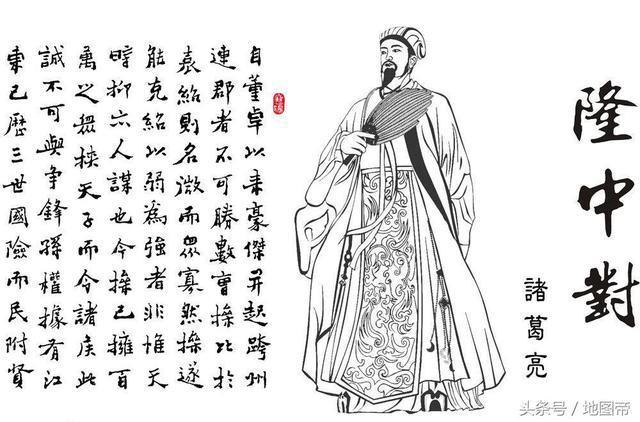 隆中對
諸葛亮
自董卓以来豪傑并起跨州
連郡者不可勝數曹操比於
袁紹則名微而眾寡然操遂
能克紹以弱為強者非惟天
時抑亦人謀也今操已擁百
萬之眾挾天子而令諸侯此
誠不可與争鋒孫權據有江
東已歷三世國險而民附賢
头条号/地图帝